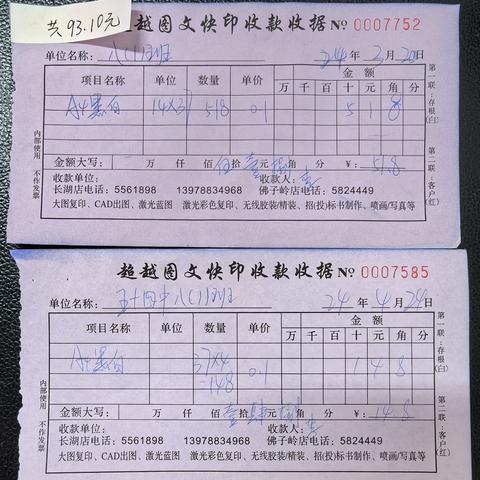 共 93.10元
超越图文快印收款收据 № 0007752
单位名称：八(1)班 24年2月20日
项目名称 单位 数量 单价 金额
万 千 百 十 元 角 分
A4黑白 14×37 518 0.1 5 1 8
金额大写： 万 仟 佰 拾 元 角 分 ￥：51.8
收款单位： 收款人：
长湖店电话：5561898 13978834968 佛子岭店电话：5824449
大图复印、CAD出图、激光蓝图 激光彩色复印、无线胶装/精装、招(投)标书制作、喷画/写真等
内部使用 不作发票
第一联：存根(白) 第二联：客户(红)
超越图文快印收款收据 № 0007585
单位名称：五十四中八(1)班 24年4月24日
项目名称 单位 数量 单价 金额
万 千 百 十 元 角 分
A4黑白 37×4 0.1 1 4 8
=148
金额大写： 万 仟 佰 壹拾肆元捌角 分 ￥：14.8
收款单位： 收款人：
长湖店电话：5561898 13978834968 佛子岭店电话：5824449
大图复印、CAD出图、激光蓝图 激光彩色复印、无线胶装/精装、招(投)标书制作、喷画/写真等
内部使用 不作发票
第一联：存根(白) 第二联：客户(红)